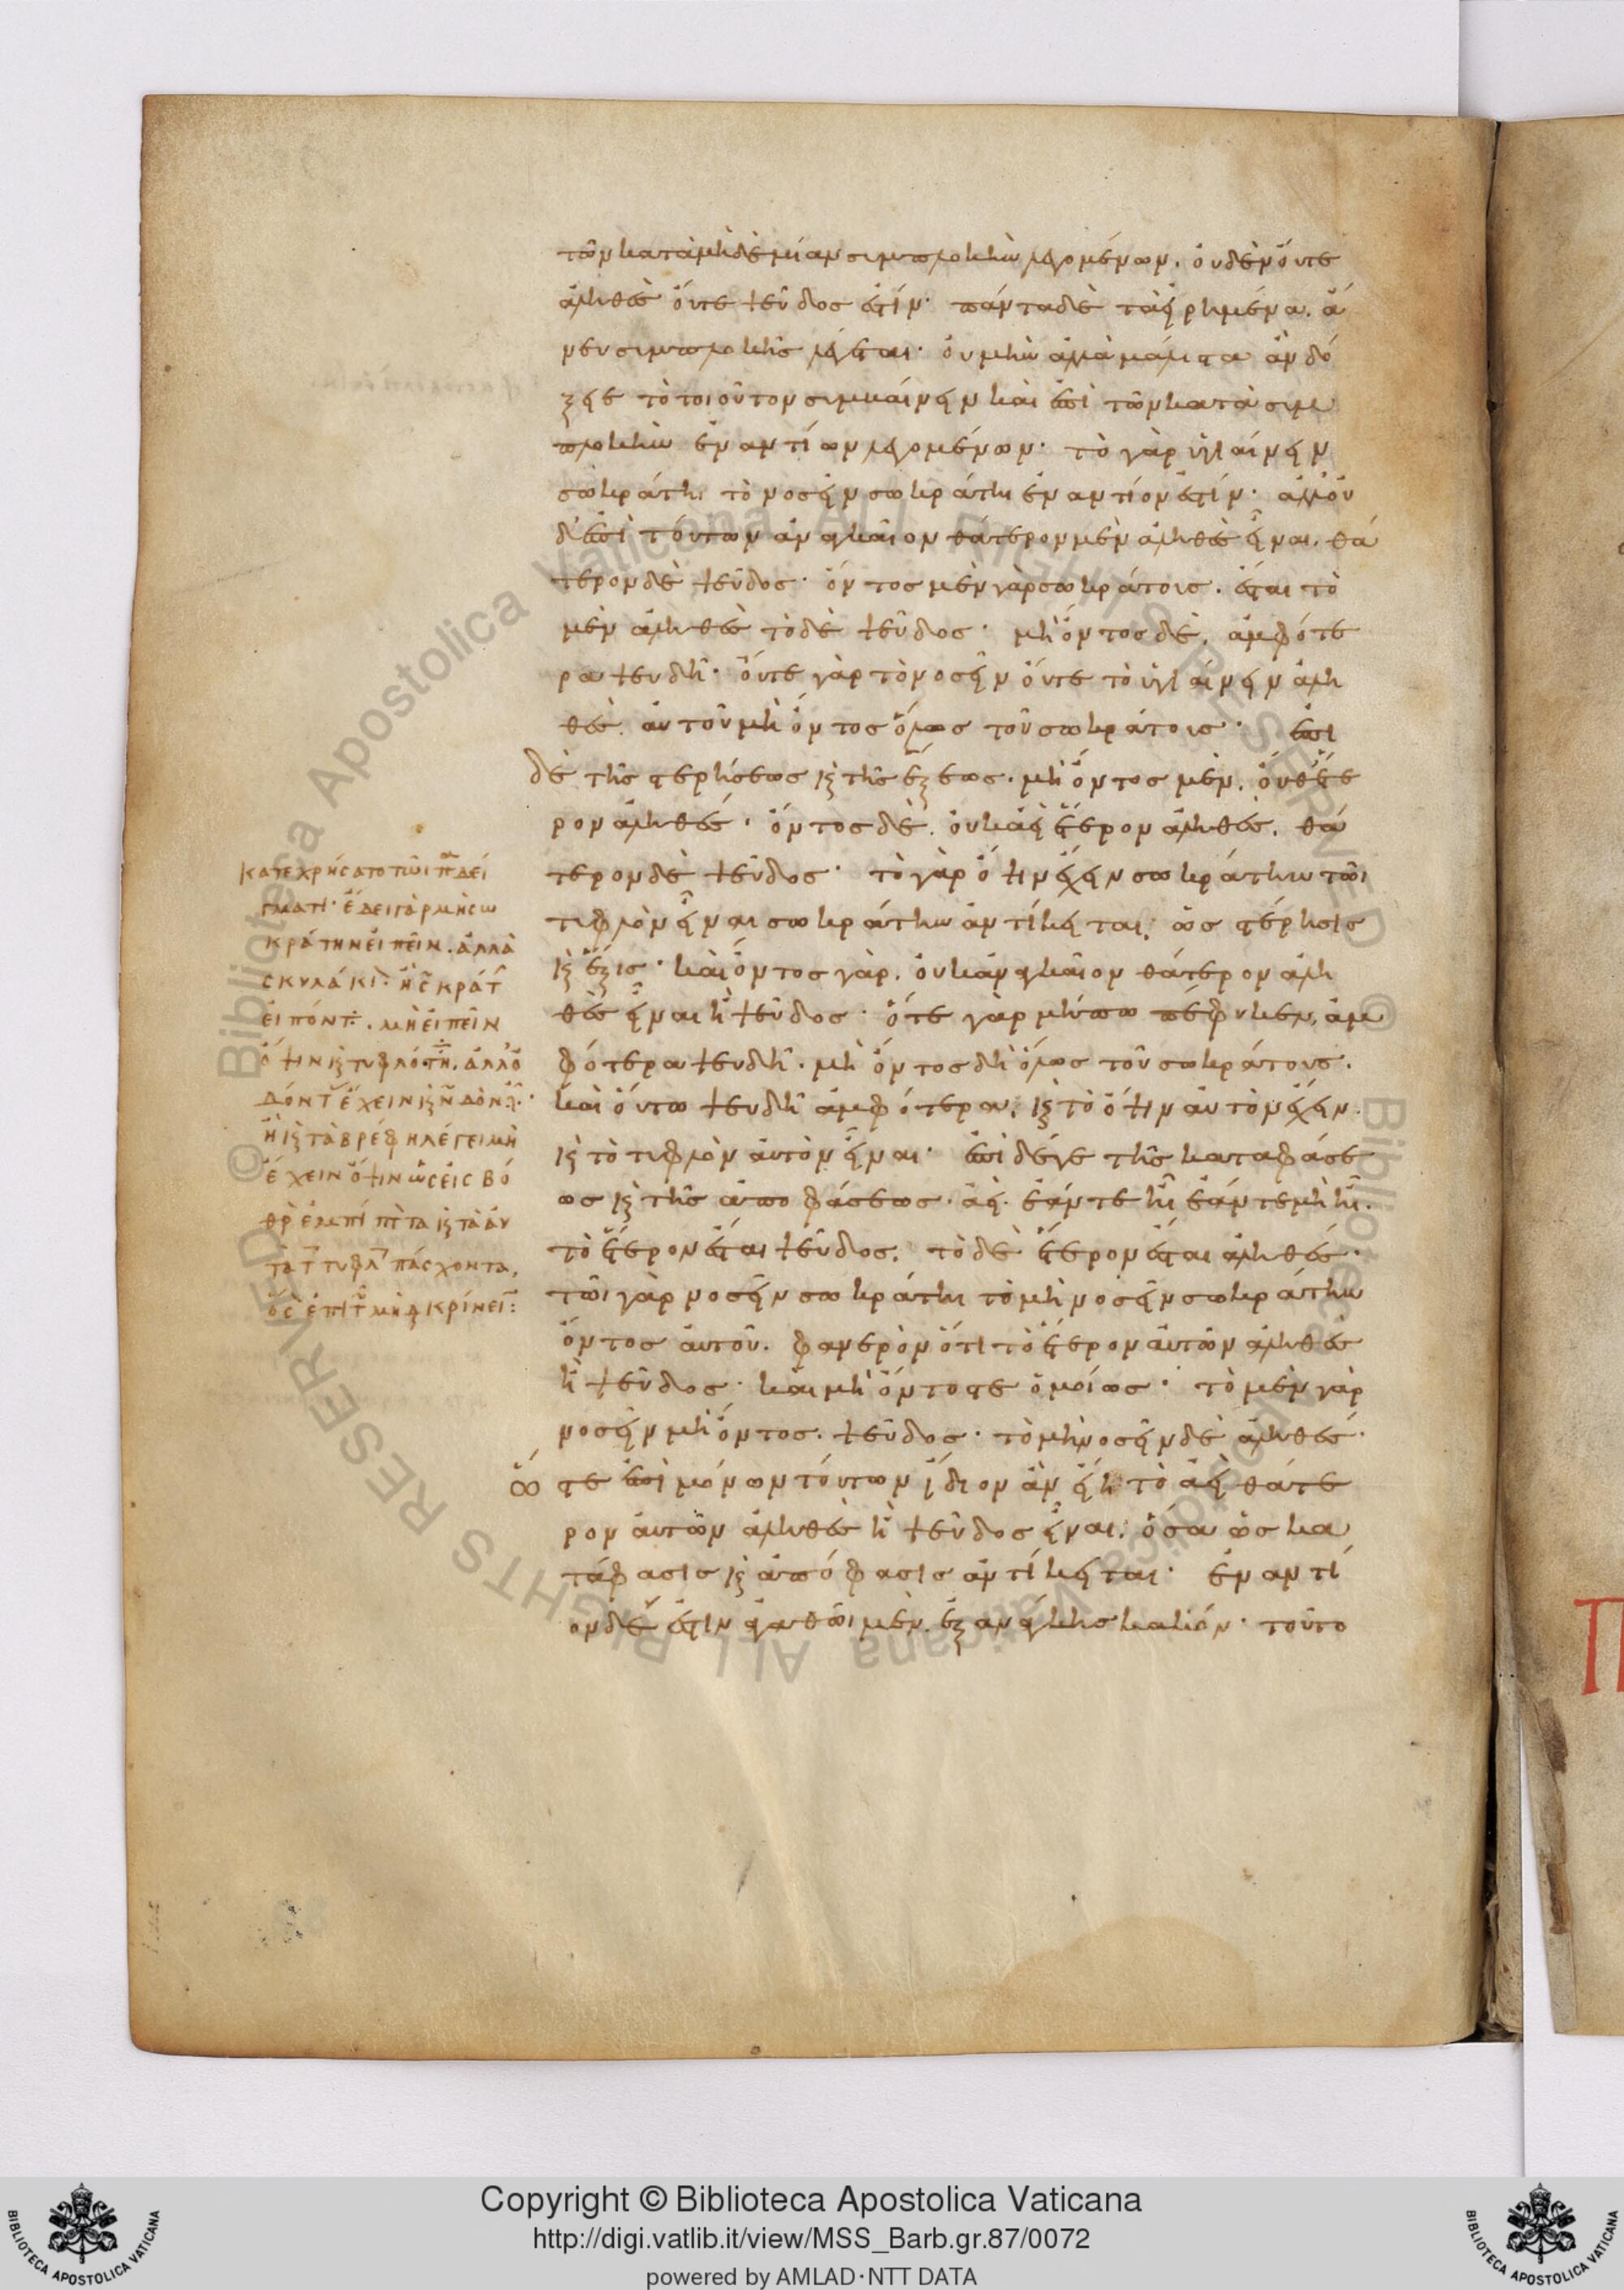 τῶν κατὰ μὴδὲμίαν συμπλοκὴν λεγομένων. οὐδὲν οὔτε
ἀληθὲς οὔτε ψεῦδος ἐστίν· πάντα δὲ τὰ εἰρημένα. ἄ
νευ συμπλοκῆς λέγεται· οὐ μὴν ἀλλὰ μάλιστα ἂν δό
ξειε τὸ τοιοῦτον συμβαίνειν καὶ ἐπὶ τῶν κατὰ συμ
πλοκὴν ἐναντίων λεγομένων· τὸ γὰρ ὑγιαίνειν
σωκράτη τὸ νοσεῖν σωκράτη ἐναντίον ἐστίν· ἀλλ' οὐ
δ' ἐπὶ τούτων ἀναγκαῖον θάτερον μὲν ἀληθὲς εἶναι. θά
τερον δὲ ψεῦδος· ὄντος μὲν γὰρ σωκράτους. ἔσται τὸ
μὲν ἀληθὲς τὸ δὲ ψεῦδος· μὴ ὄντος δὲ. ἀμφότε
ρα ψευδῆ· οὔτε γὰρ τὸ νοσεῖν οὔτε τὸ ὑγιαίνειν ἀλη
θές. αὐτοῦ μὴ ὄντος ὅλως τοῦ σωκράτους· ἐπὶ
δὲ τῆς στερήσεως κ τῆς ἕξεως. μὴ ὄντος μὲν. οὐθέτε
ρον ἀληθές· ὄντος δὲ. οὐκ ἀεὶ ἕτερον ἀληθές. θά
τερον δὲ ψεῦδος· τὸ γὰρ ὄψιν ἔχειν σωκράτην τῶι
τυφλὸν εἶναι σωκράτην ἀντίκειται. ὡς στέρησις
κ ἕξις· καὶ ὄντος γὰρ. οὐκ ἀναγκαῖον θάτερον ἀλη
θὲς εἶναι ἢ ψεῦδος· ὅτε γὰρ μήπω πέφυκεν. ἀμ
φότερα ψευδῆ· μὴ ὄντος δὴ ὅλως τοῦ σωκράτους.
καὶ οὕτω ψευδῆ ἀμφότερα. κ τὸ ὄψιν αὐτὸν ἔχειν.
κ τὸ τυφλὸν αὐτὸν εἶναι· ἐπὶ δέ γε τῆς καταφάσε
ως κ τῆς ἀποφάσεως. ἀεὶ. ἐάν τε ἦι ἐάν τε μὴ ἦι.
τὸ ἕτερον ἔσται ψεῦδος. τὸ δὲ ἕτερον ἔσται ἀληθές·
τῶι γὰρ νοσεῖν σωκράτη τὸ μὴ νοσεῖν σωκράτην
ὄντος αὐτοῦ. φανερὸν ὅτι τὸ ἕτερον αὐτῶν ἀληθὲς
ἢ ψεῦδος· καὶ μὴ ὄντος τε ὁμοίως· τὸ μὲν γὰρ
νοσεῖν μὴ ὄντος. ψεῦδος· τὸ μὴ νοσεῖν δὲ ἀληθές·
ὥστε ἐπὶ μόνων τούτων ἴδιον ἂν εἴη τὸ ἀεὶ θάτε
ρον αὐτῶν ἀληθὲς ἢ ψεῦδος εἶναι. ὅσα ὡς κα
τάφασις κ ἀπόφασις ἀντίκειται· ἐναντί
ον δέ ἐστιν ἀγαθῶι μὲν. ἐξ ἀνάγκης κακόν· τοῦτο
κατεχρήσατο τῶι πδεί
γματι· ἔδει γὰρ μὴ σω
κράτην εἰπεῖν. ἀλλὰ
σκυλάκι· ἢ σκράτ
εἰπόντ. μὴ εἰπεῖν
ὄψιν κ τυφλότη. ἀλλ' ὀ
δόντ ἔχειν κ
ἢ κ τὰ βρέφη λέγει μὴ
ἔχειν ὄψιν ὡς εἰς βό
θρ ἐμπίπτα κ τὰ αὐ
τὰ τ τυφλ πάσχοντα.